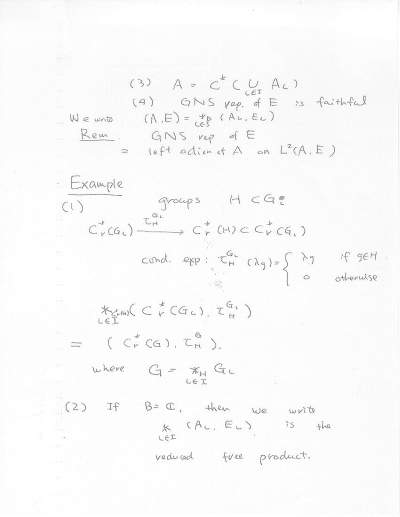 (3) A = C*( ∪_{ι∈I} A_ι )
(4) GNS rep. of E is faithful
We write (A,E) = *_{B, ι∈I} (A_ι, E_ι)
Rem GNS rep of E
= left action of A on L²(A,E)
Example
(1) groups H ⊂ G_ι
C*_r(G_ι) —τ_H^{G_ι}→ C*_r(H) ⊂ C*_r(G_ι)
cond. exp: τ_H^{G_ι}(λg) = { λg if g∈H
0 otherwise
*_{ι∈I} ( C*_r(G_ι), τ_H^{G_ι} )
= ( C*_r(G), τ_H^G ),
where G = *_H G_ι
ι∈I
(2) If B = ℂ, then we write
*_{ι∈I} (A_ι, E_ι) is the
reduced free product.